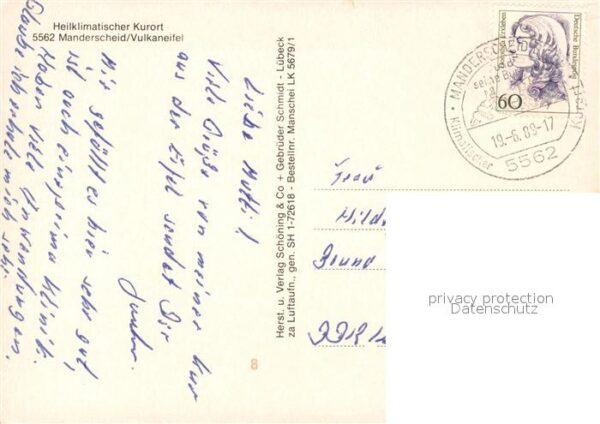 Heilklimatischer Kurort
5562 Manderscheid/Vulkaneifel
Liebe Mutti!
Viele Grüße von meiner Kur
aus der Eifel sendet Dir
Mir gefällt es hier sehr gut,
ist auch eine prima Klinik.
Haben viele Anwendungen.
Glaube ich erhole mich sehr.
Herst. u. Verlag Schöning & Co + Gebrüder Schmidt - Lübeck
za Luftaufn., gen. SH 1-72618 - Bestellnr. Manschei LK 5679/1
8
Deutsche Bundespost
60
MANDERSCHEID
Klimatischer Kurort
19.-6.89-17
5562
Frau
Hild
privacy protection
Datenschutz